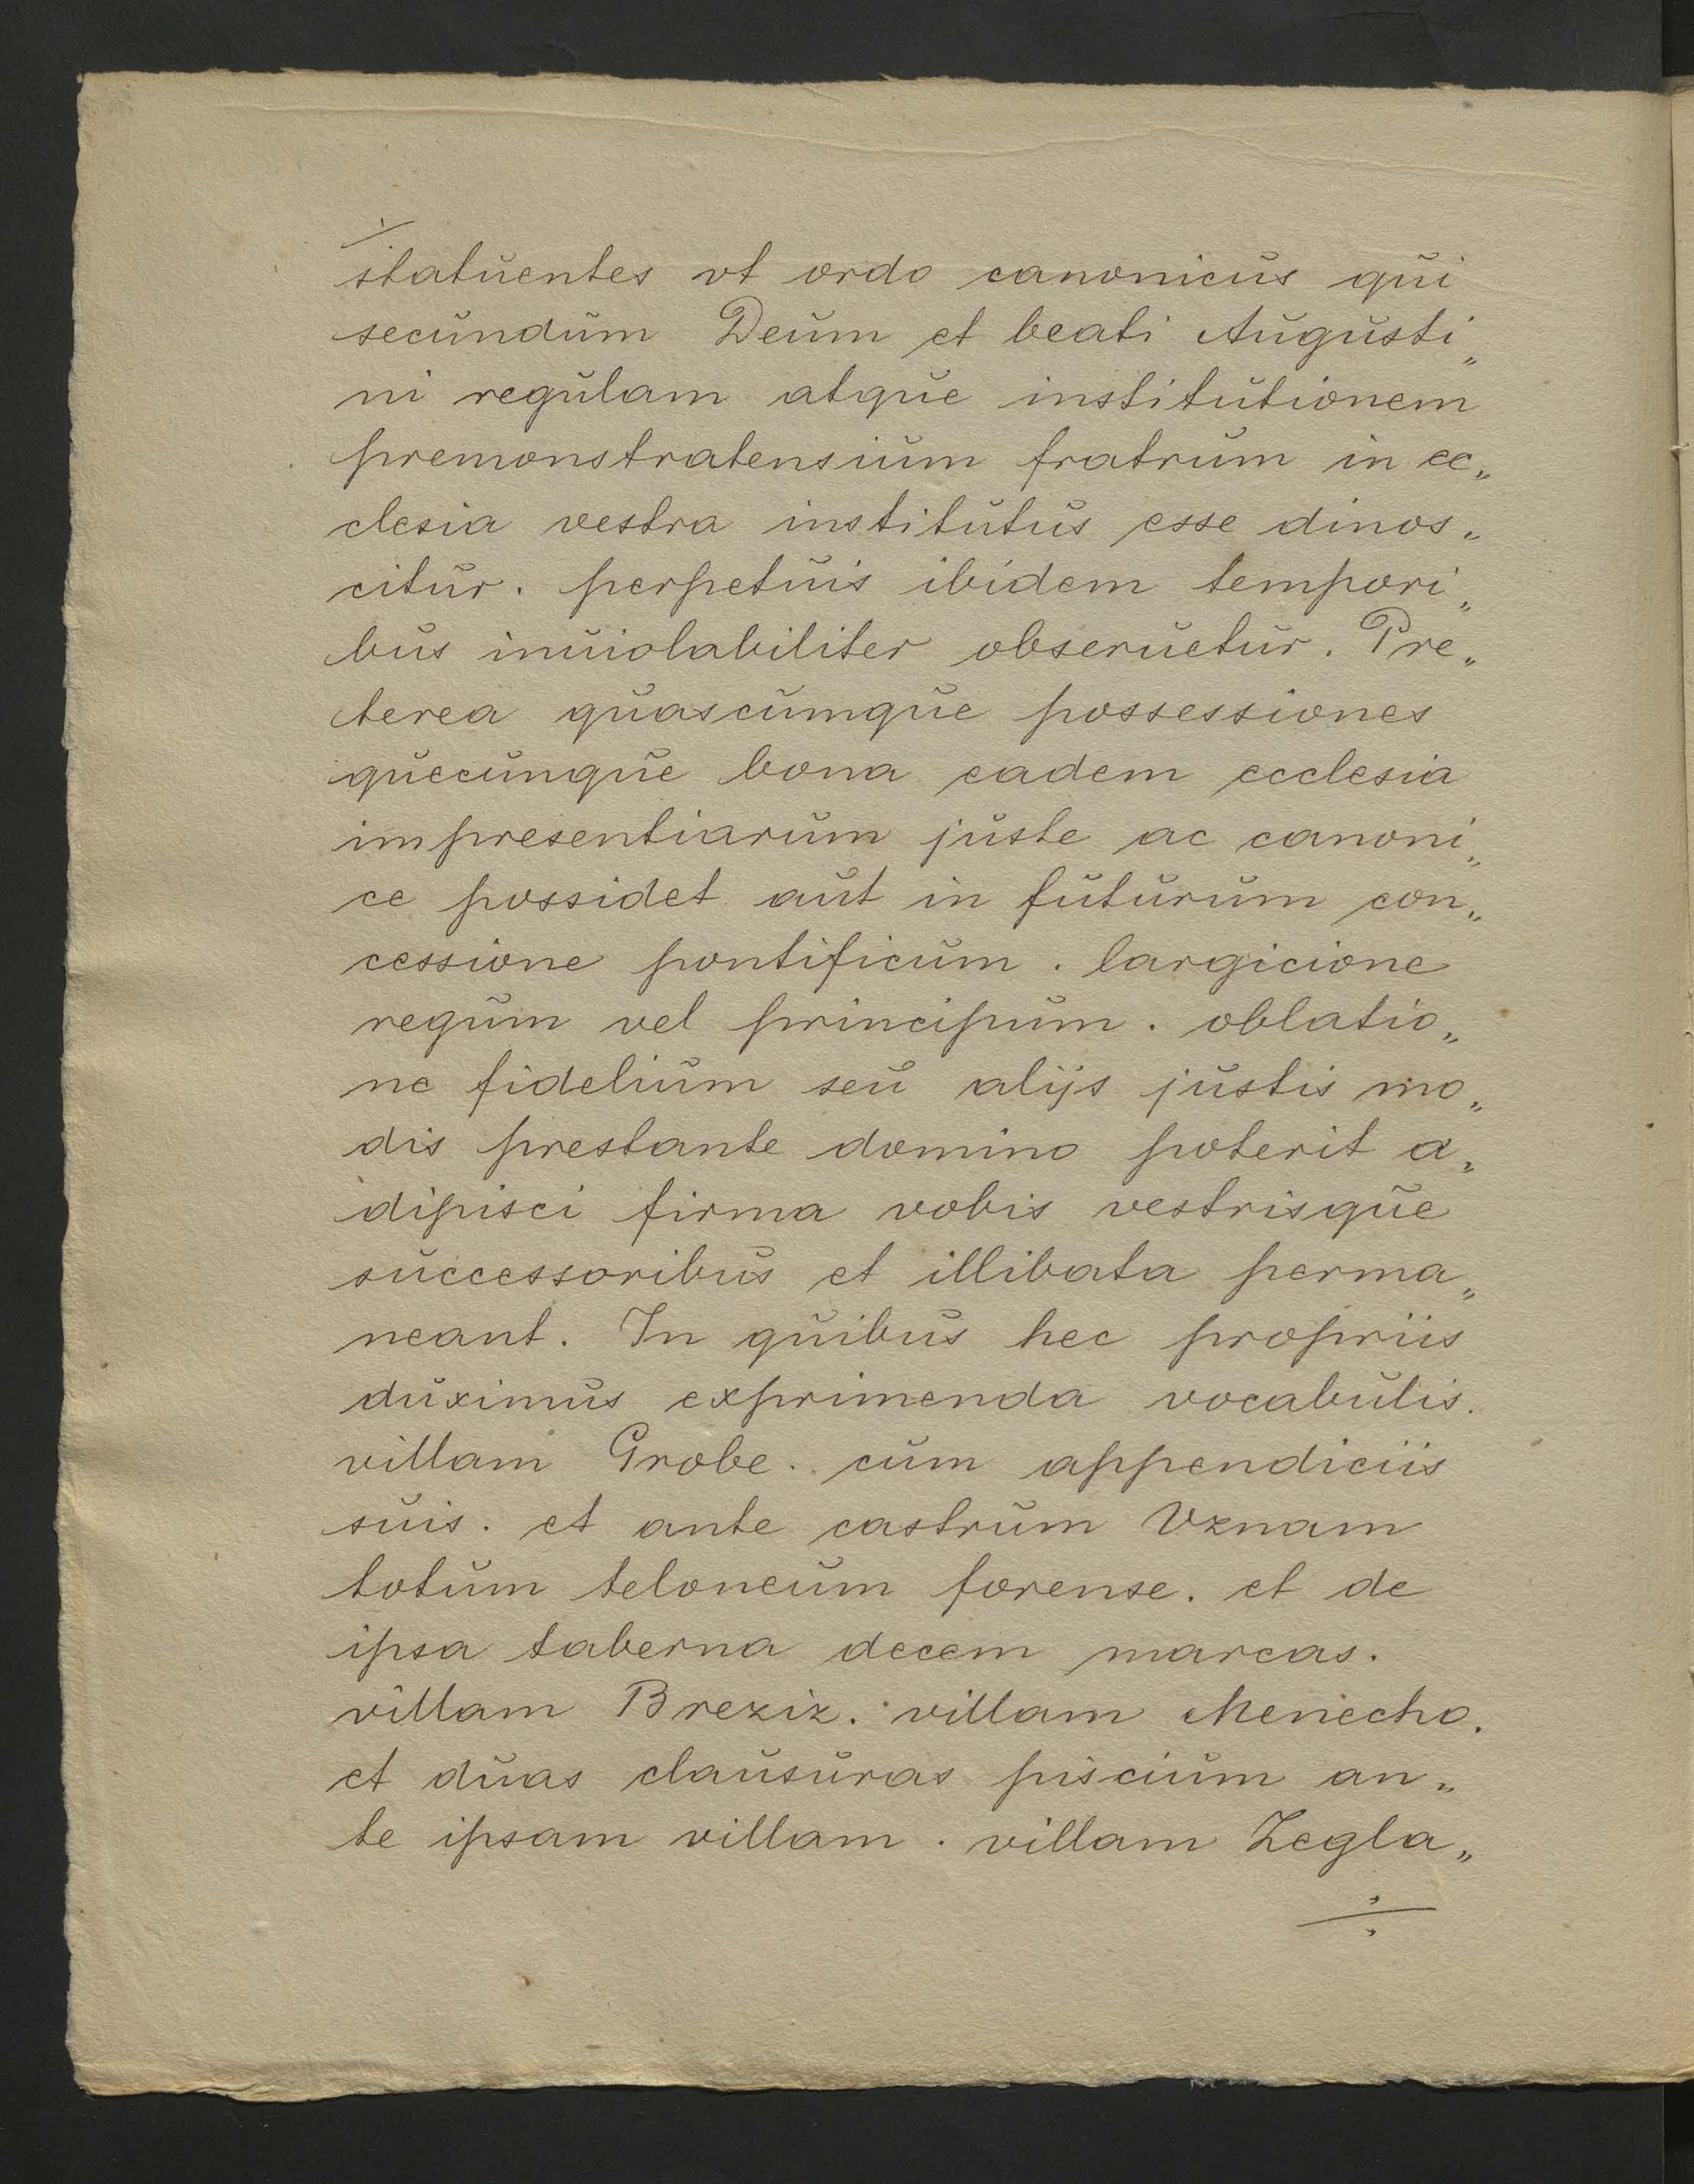 statuentes vt ordo canonicus qui
secundum Deum et beati Augusti„
ni regulam atque institutionem
premonstratensium fratrum in ec„
clesia vestra institutus esse dinos„
citur. perpetuis ibidem tempori„
bus inuiolabiliter obseruetur. Pre„
terea quascumque possessiones
quecunque bona eadem ecclesia
impresentiarum juste ac canoni„
ce possidet aut in futurum con„
cessione pontificum. largicione
regum vel principum. oblatio„
ne fidelium seu alijs justis mo„
dis prestante domino poterit a„
dipisci firma vobis vestrisque
successoribus et illibata perma„
neant. In quibus hec propriis
duximus exprimenda vocabulis.
villam Grobe. cum appendiciis
suis. et ante castrum Vznam
totum teloneum forense. et de
ipsa taberna decem marcas.
villam Breziz. villam Menecho.
et duas clausuras piscium an„
te ipsam villam. villam Zegla„